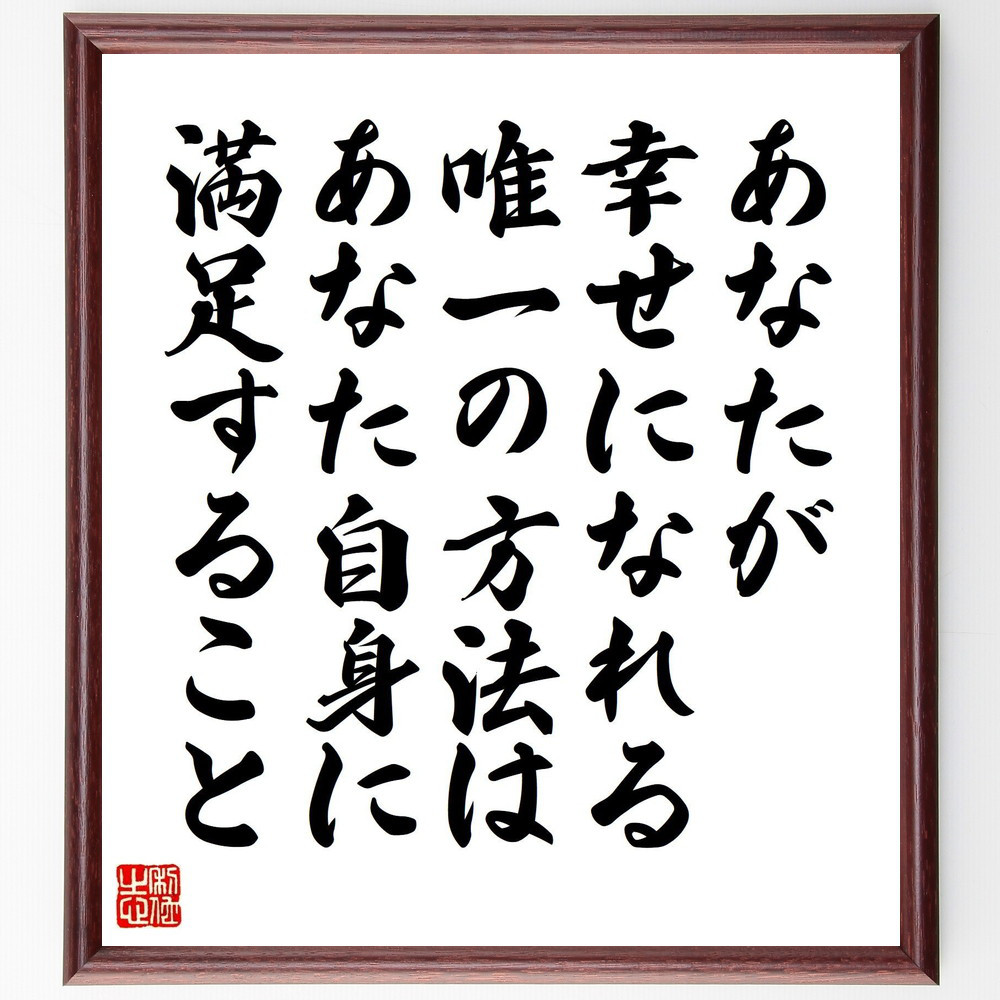 あなたが
幸せになれる
唯一の方法は
あなた自身に
満足すること